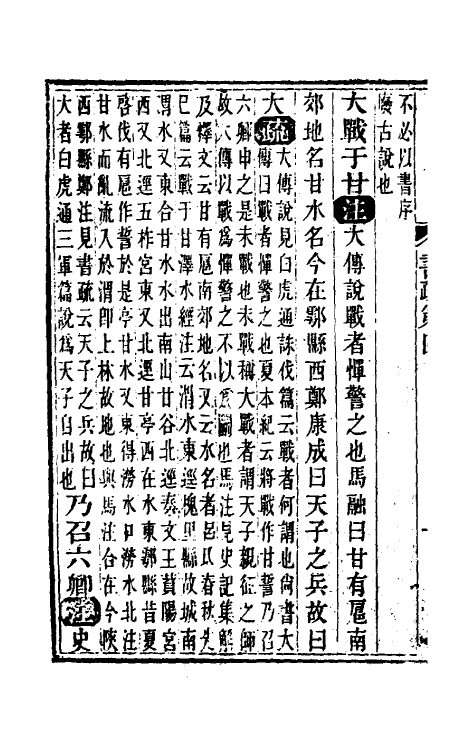 不必以書序
廢古說也
大戰于甘注大傳說戰者憚警之也馬融曰甘有扈南
郊地名甘水名今在鄠縣西鄭康成曰天子之兵故曰
大疏大傳說見白虎通誅伐篇云戰者何謂也尚書大
傳曰戰者憚警之也夏本紀云將戰作甘誓乃召
六卿申之是未戰也未戰稱大戰者謂天子親征之師
故大傳以戰爲憚警之不以爲鬭也馬注見史記集解
及釋文云甘有扈南郊地名又云水名者呂氏春秋先
己篇云戰于甘澤水經注云渭水東逕槐里縣故城南
渭水又東合甘水水出南山甘谷北逕秦文王萯陽宮
西又北逕五柞宮東又北逕甘亭西在水東鄠縣昔夏
啓伐有扈作誓於是亭甘水又東得澇水口澇水北注
甘水而亂流入於渭即上林故地也與馬注合在今陝
西鄠縣鄭注見書疏云天子之兵故曰
大者白虎通三軍篇說爲天子自出也乃召六卿注史